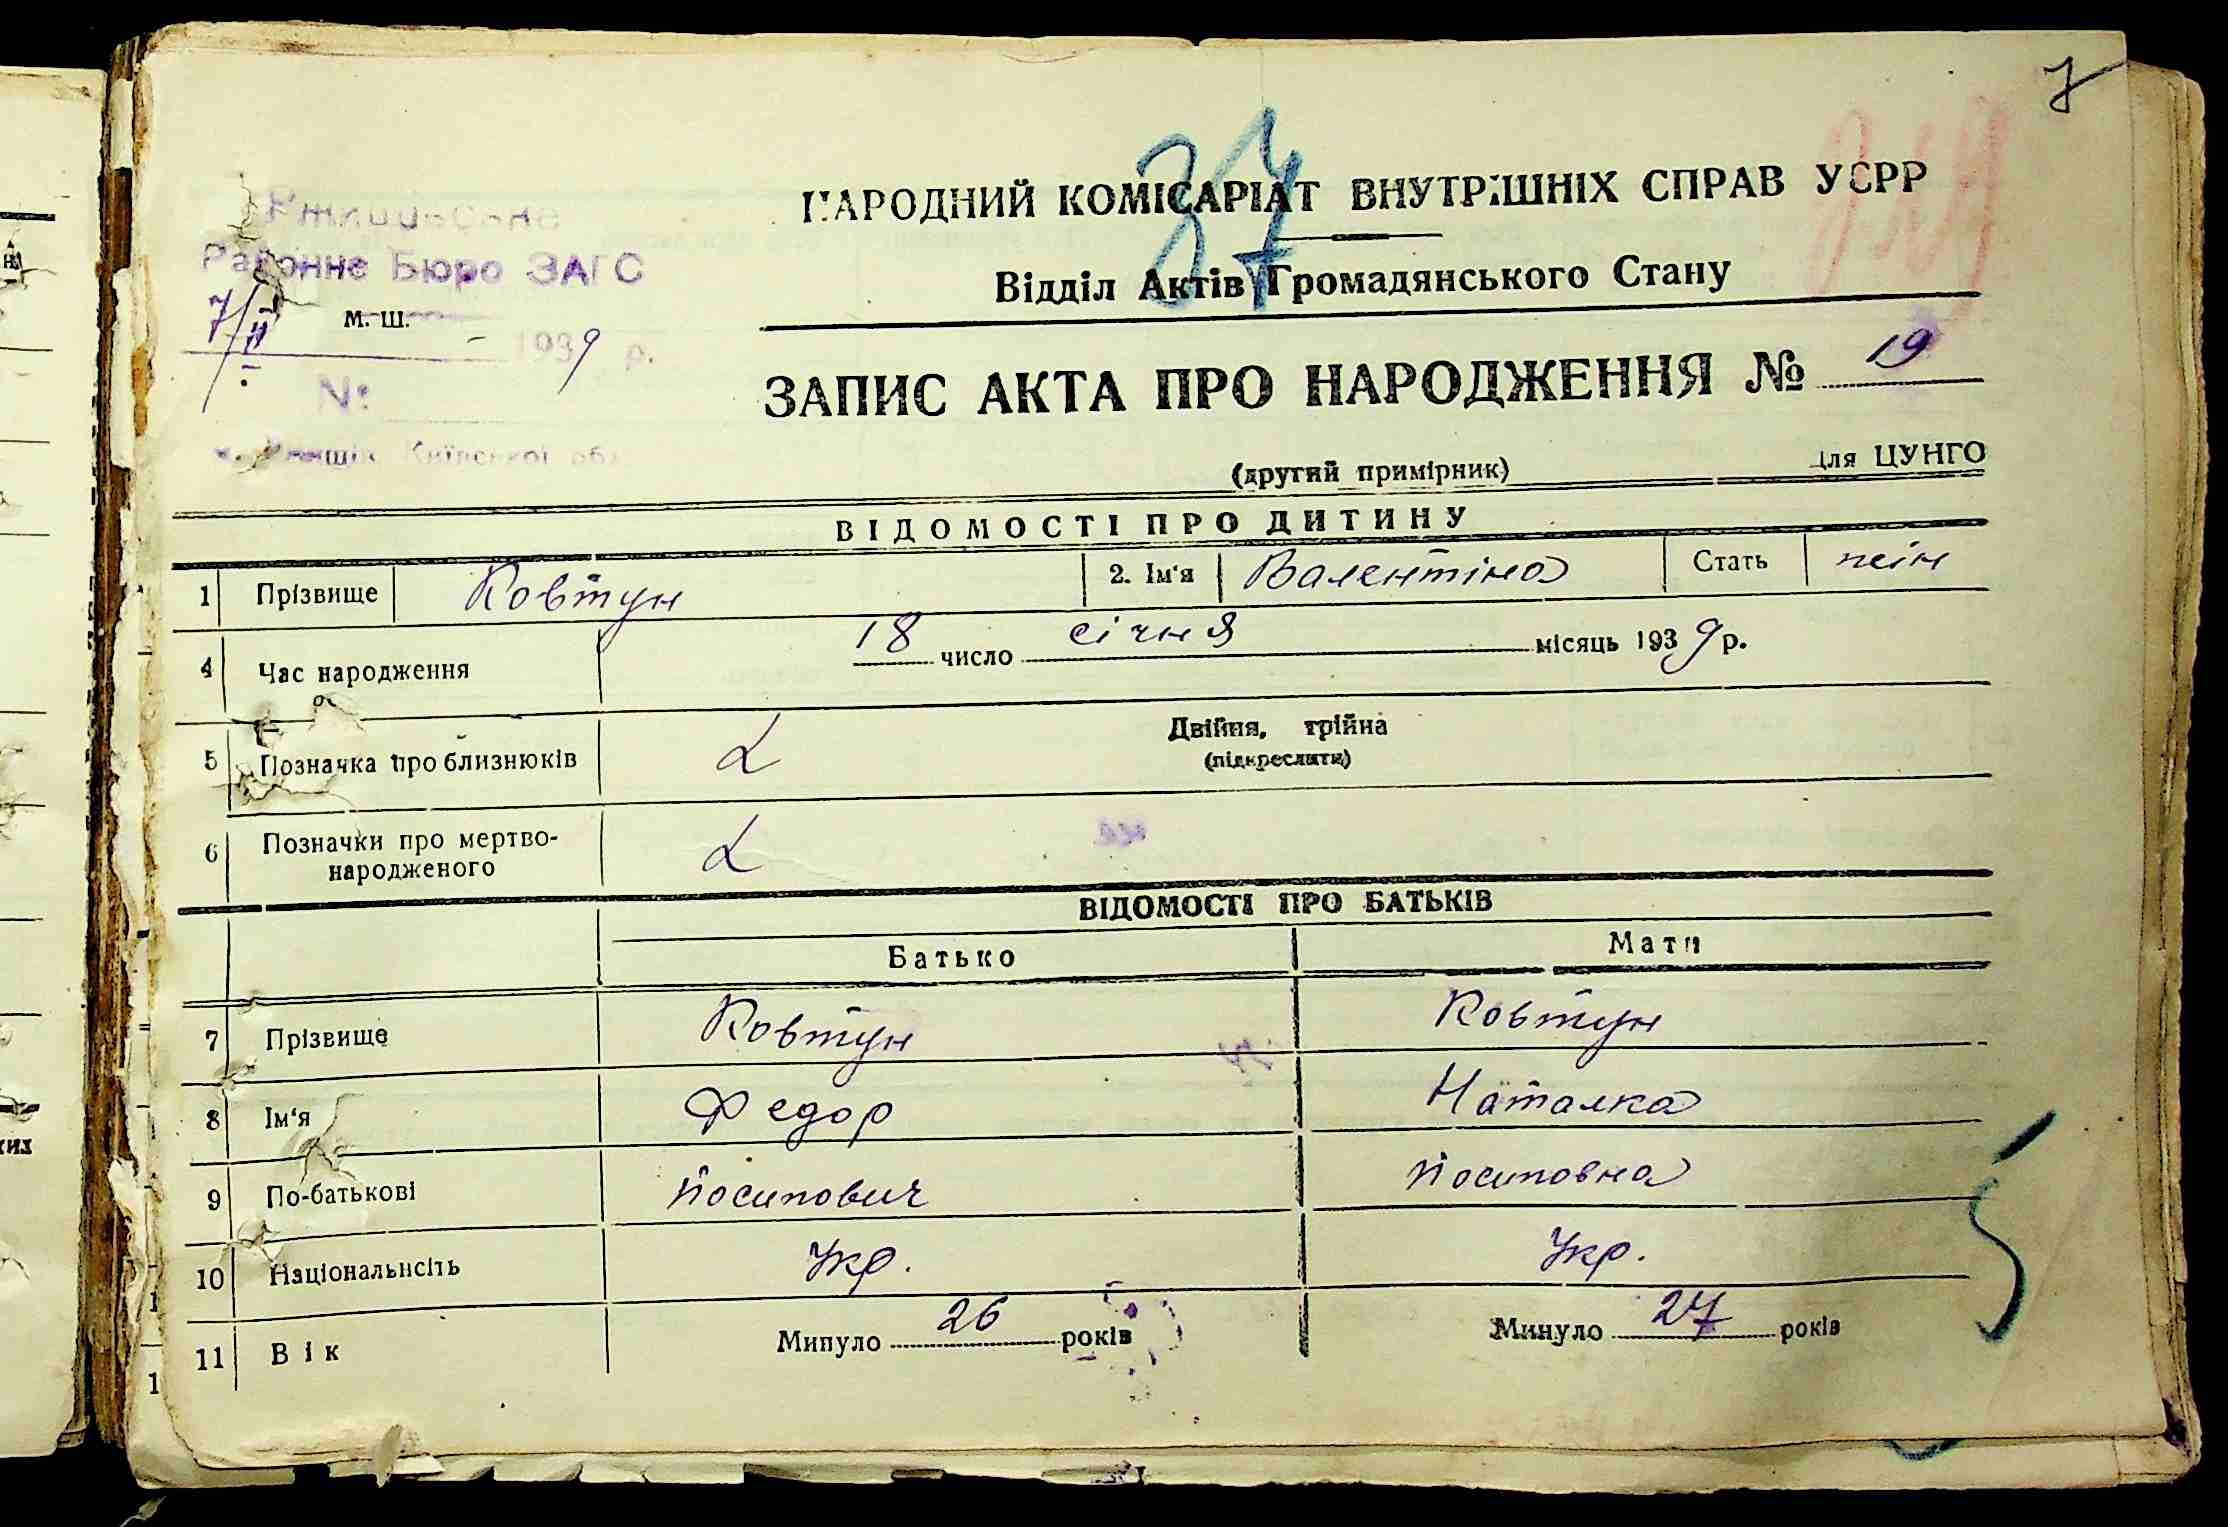 7
37
НАРОДНИЙ КОМІСАРІАТ ВНУТРІШНІХ СПРАВ УСРР
Відділ Актів Громадянського Стану
Районне Бюро ЗАГС
7/ІІ
м. ш.
1939 р.
№
Київської обл
ЗАПИС АКТА ПРО НАРОДЖЕННЯ № 19
(другий примірник) для ЦУНГО
ВІДОМОСТІ ПРО ДИТИНУ
1 Прізвище Ковтун 2. Ім'я Валентіна Стать жін
4 Час народження 18 число січня місяць 1939 р.
5 Позначка про близнюків Двійня, трійна
(підкреслити)
6 Позначки про мертво-
народженого
ВІДОМОСТІ ПРО БАТЬКІВ
Батько Мати
7 Прізвище Ковтун Ковтун
8 Ім'я Федор Наталка
9 По-батькові Йосипович Йосиповна
10 Національність Укр. Укр.
11 Вік Минуло 26 років Минуло 27 років